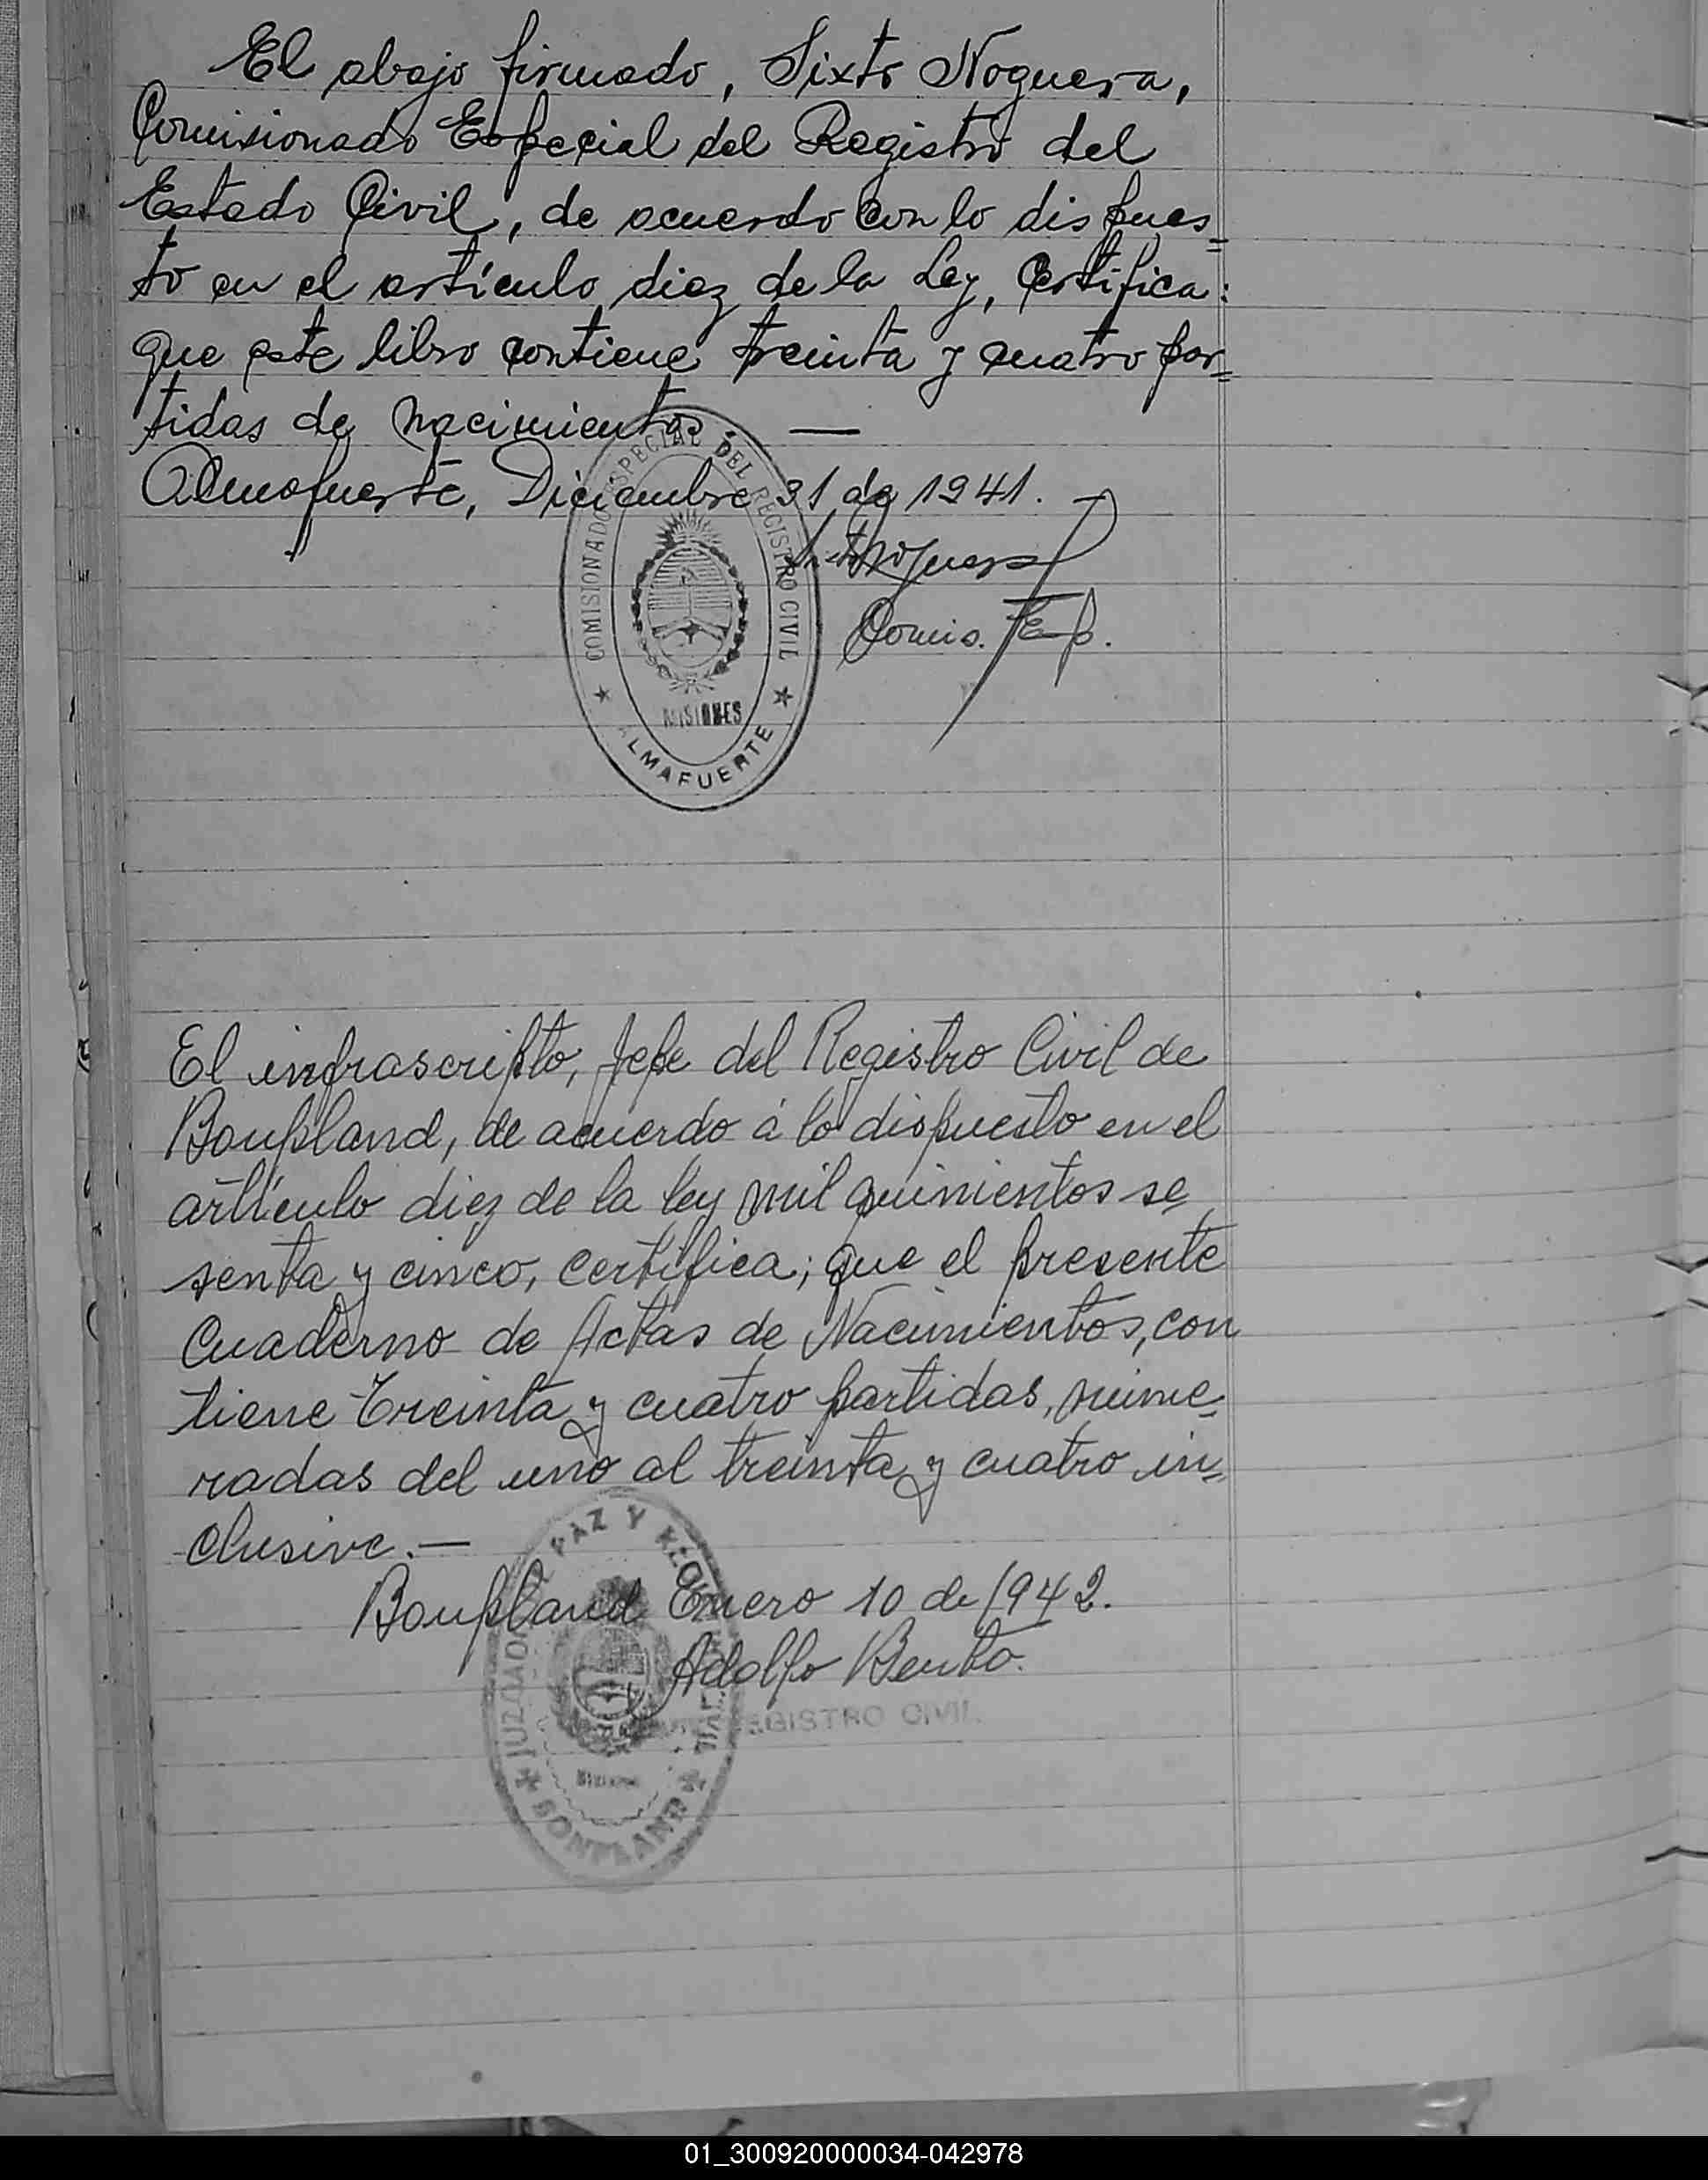 El abajo firmado, Sixto Noguera,
Comisionado Especial del Registro del
Estado Civil, de acuerdo con lo dispues=
to en el artículo diez de la Ley, Certifica:
que este libro contiene treinta y cuatro par=
tidas de nacimientos —
Almafuerte, Diciembre 31 de 1941.
Noguera
Comis. Esp.
COMISIONADO ESPECIAL DEL REGISTRO CIVIL
MISIONES
ALMAFUERTE
El infrascripto, Jefe del Registro Civil de
Bonpland, de acuerdo á lo dispuesto en el
artículo diez de la ley mil quinientos se
senta y cinco, certifica; que el presente
Cuaderno de Actas de Nacimientos, con
tiene Treinta y cuatro partidas, nume=
radas del uno al treinta y cuatro in=
clusive.—
Bonpland Enero 10 de 1942.
Adolfo Bento.
REGISTRO CIVIL
JUZGADO PAZ Y
BONPLAND
01_300920000034-042978